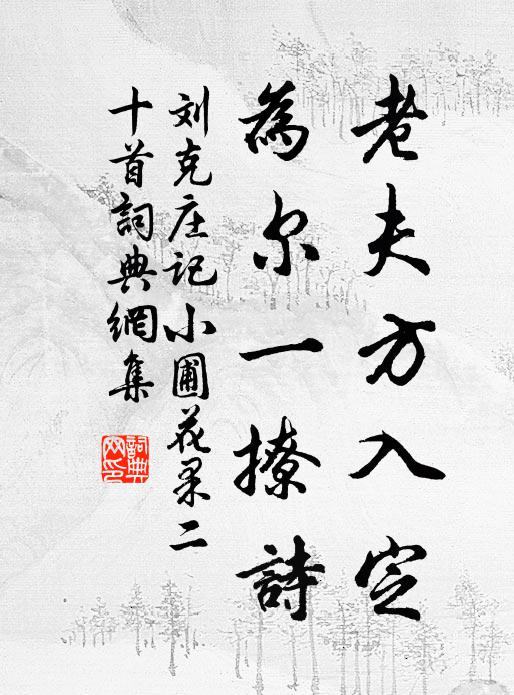 老夫方入定
為尔一撩詩
刘克庄记小圃花果二
十首詞典網集
詞典網印